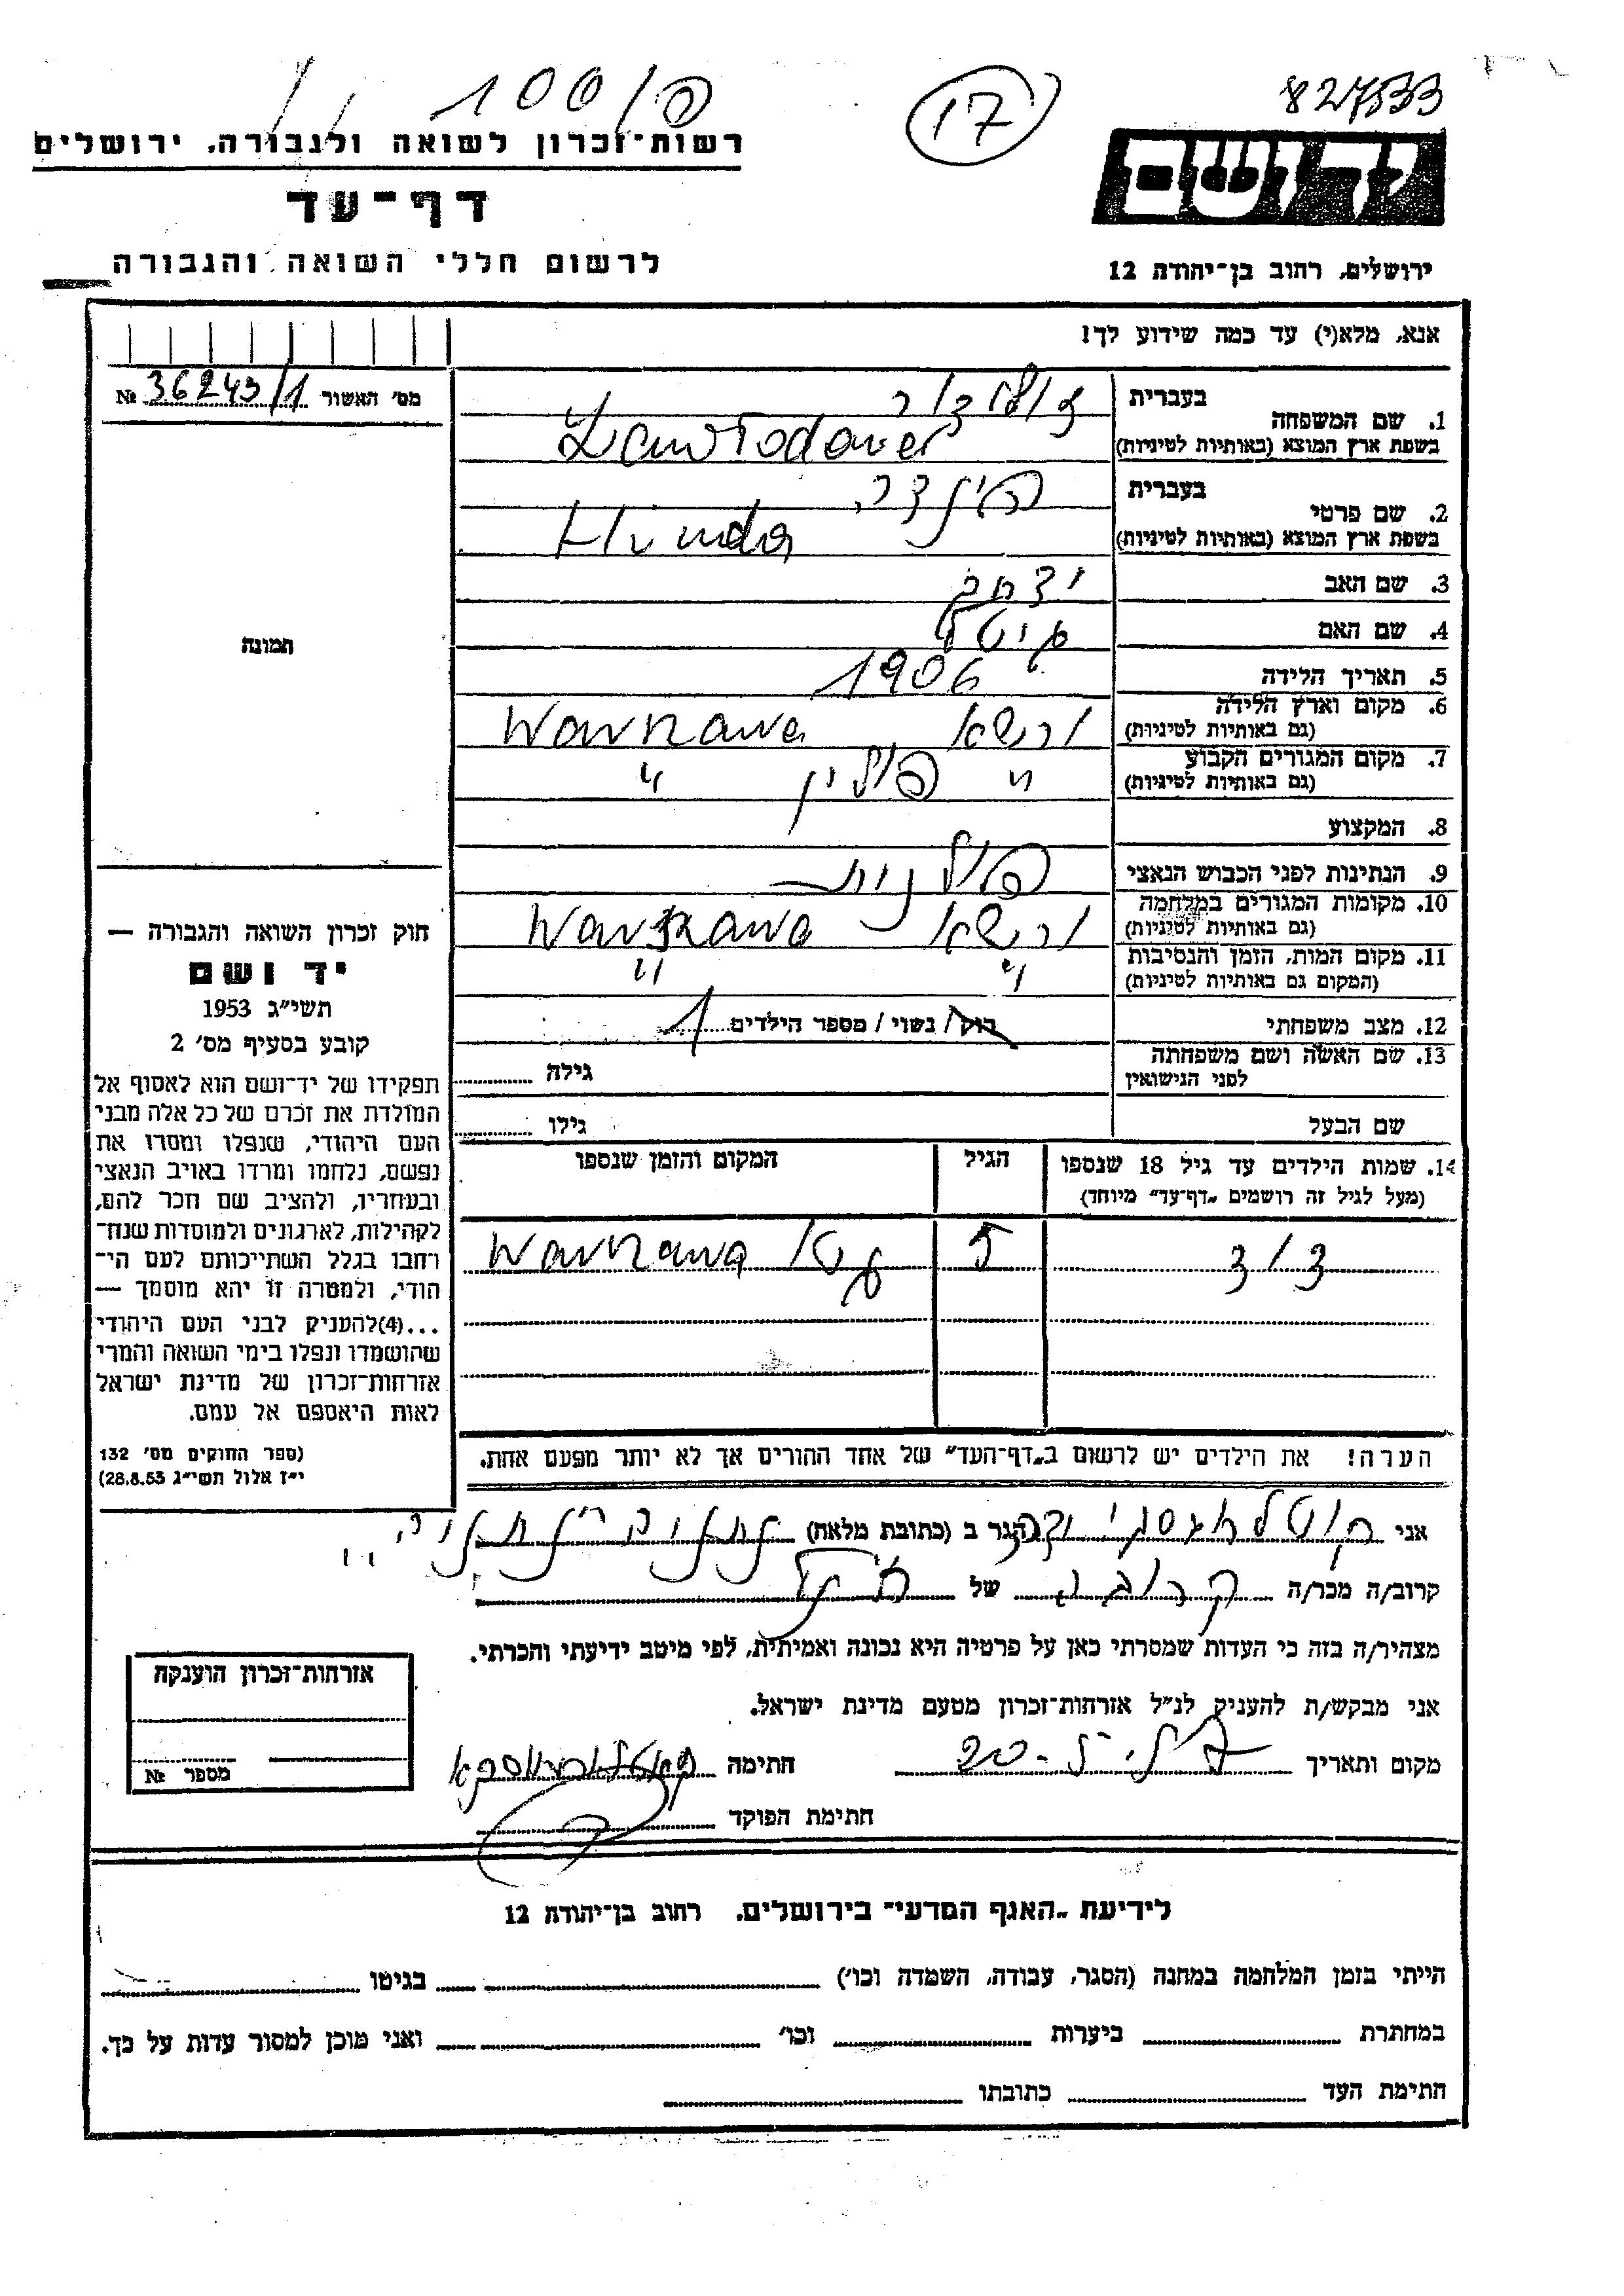 100/פ
17
827533
רשות־זכרון לשואה ולגבורה, ירושלים
דף־עד
לרשום חללי השואה והגבורה
ידושם
ירושלים, רחוב בן־יהודה 12
אנא, מלא(י) עד כמה שידוע לך!
מס׳ האשור 36243/1 №
תמונה
1. שם המשפחה
בעברית
בשפת ארץ המוצא (באותיות לטיניות)
2. שם פרטי
בעברית הינדה
בשפת ארץ המוצא (באותיות לטיניות) Hinda
3. שם האב יצחק
4. שם האם
5. תאריך הלידה 1906
6. מקום וארץ הלידה ורשא Warszawa
(גם באותיות לטיניות)
7. מקום המגורים הקבוע " פולין "
(גם באותיות לטיניות)
8. המקצוע
9. הנתינות לפני הכבוש הנאצי פולנית
10. מקומות המגורים במלחמה ורשא Warszawa
(גם באותיות לטיניות)
11. מקום המות, הזמן והנסיבות " "
(המקום גם באותיות לטיניות)
12. מצב משפחתי רוק / נשוי / מספר הילדים 1
13. שם האשה ושם משפחתה גילה
לפני הנישואין
שם הבעל גילו
14. שמות הילדים עד גיל 18 שנספו הגיל המקום והזמן שנספו
(מעל לגיל זה רושמים „דף־עד״ מיוחד)
דוד 5 Warszawa
הערה! את הילדים יש לרשום ב„דף־העד״ של אחד ההורים אך לא יותר מפעם אחת.
חוק זכרון השואה והגבורה —
יד ושם
תשי״ג 1953
קובע בסעיף מס׳ 2
תפקידו של יד־ושם הוא לאסוף אל
המולדת את זכרם של כל אלה מבני
העם היהודי, שנפלו ומסרו את
נפשם, נלחמו ומרדו באויב הנאצי
ובעוזריו, ולהציב שם וזכר להם,
לקהילות, לארגונים ולמוסדות שנח־
רחבו בגלל השתייכותם לעם הי־
הודי, ולמטרה זו יהא מוסמך —
...(4)להעניק לבני העם היהודי
שהושמדו ונפלו בימי השואה והמרי
אזרחות־זכרון של מדינת ישראל
לאות היאספם אל עמם.
(ספר החוקים מס׳ 132
י״ז אלול תשי״ג 28.8.53)
אני הגר ב (כתובת מלאה)
קרוב/ה מכר/ה קרובה של
מצהיר/ה בזה כי העדות שמסרתי כאן על פרטיה היא נכונה ואמיתית, לפי מיטב ידיעתי והכרתי.
אני מבקש/ת להעניק לנ״ל אזרחות־זכרון מטעם מדינת ישראל.
מקום ותאריך חתימה
חתימת הפוקד
אזרחות־זכרון הוענקה
מספר №
לידיעת „האגף המדעי״ בירושלים, רחוב בן־יהודה 12
הייתי בזמן המלחמה במחנה (הסגר, עבודה, השמדה וכו׳) בגיטו
במחתרת ביערות וכו׳ ואני מוכן למסור עדות על כך.
חתימת העד כתובתו